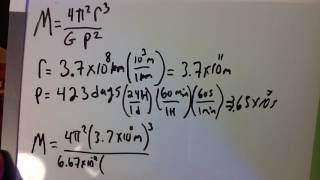 M = 4π²r³ / G P²
r = 3.7×10⁸ km (10³ m / 1 km) = 3.7×10¹¹ m
P = 423 days (24H / 1d) (60 min / 1H) (60s / 1min) = 3.65×10⁷s
M = 4π² (3.7×10¹¹ m)³ / 6.67×10 (